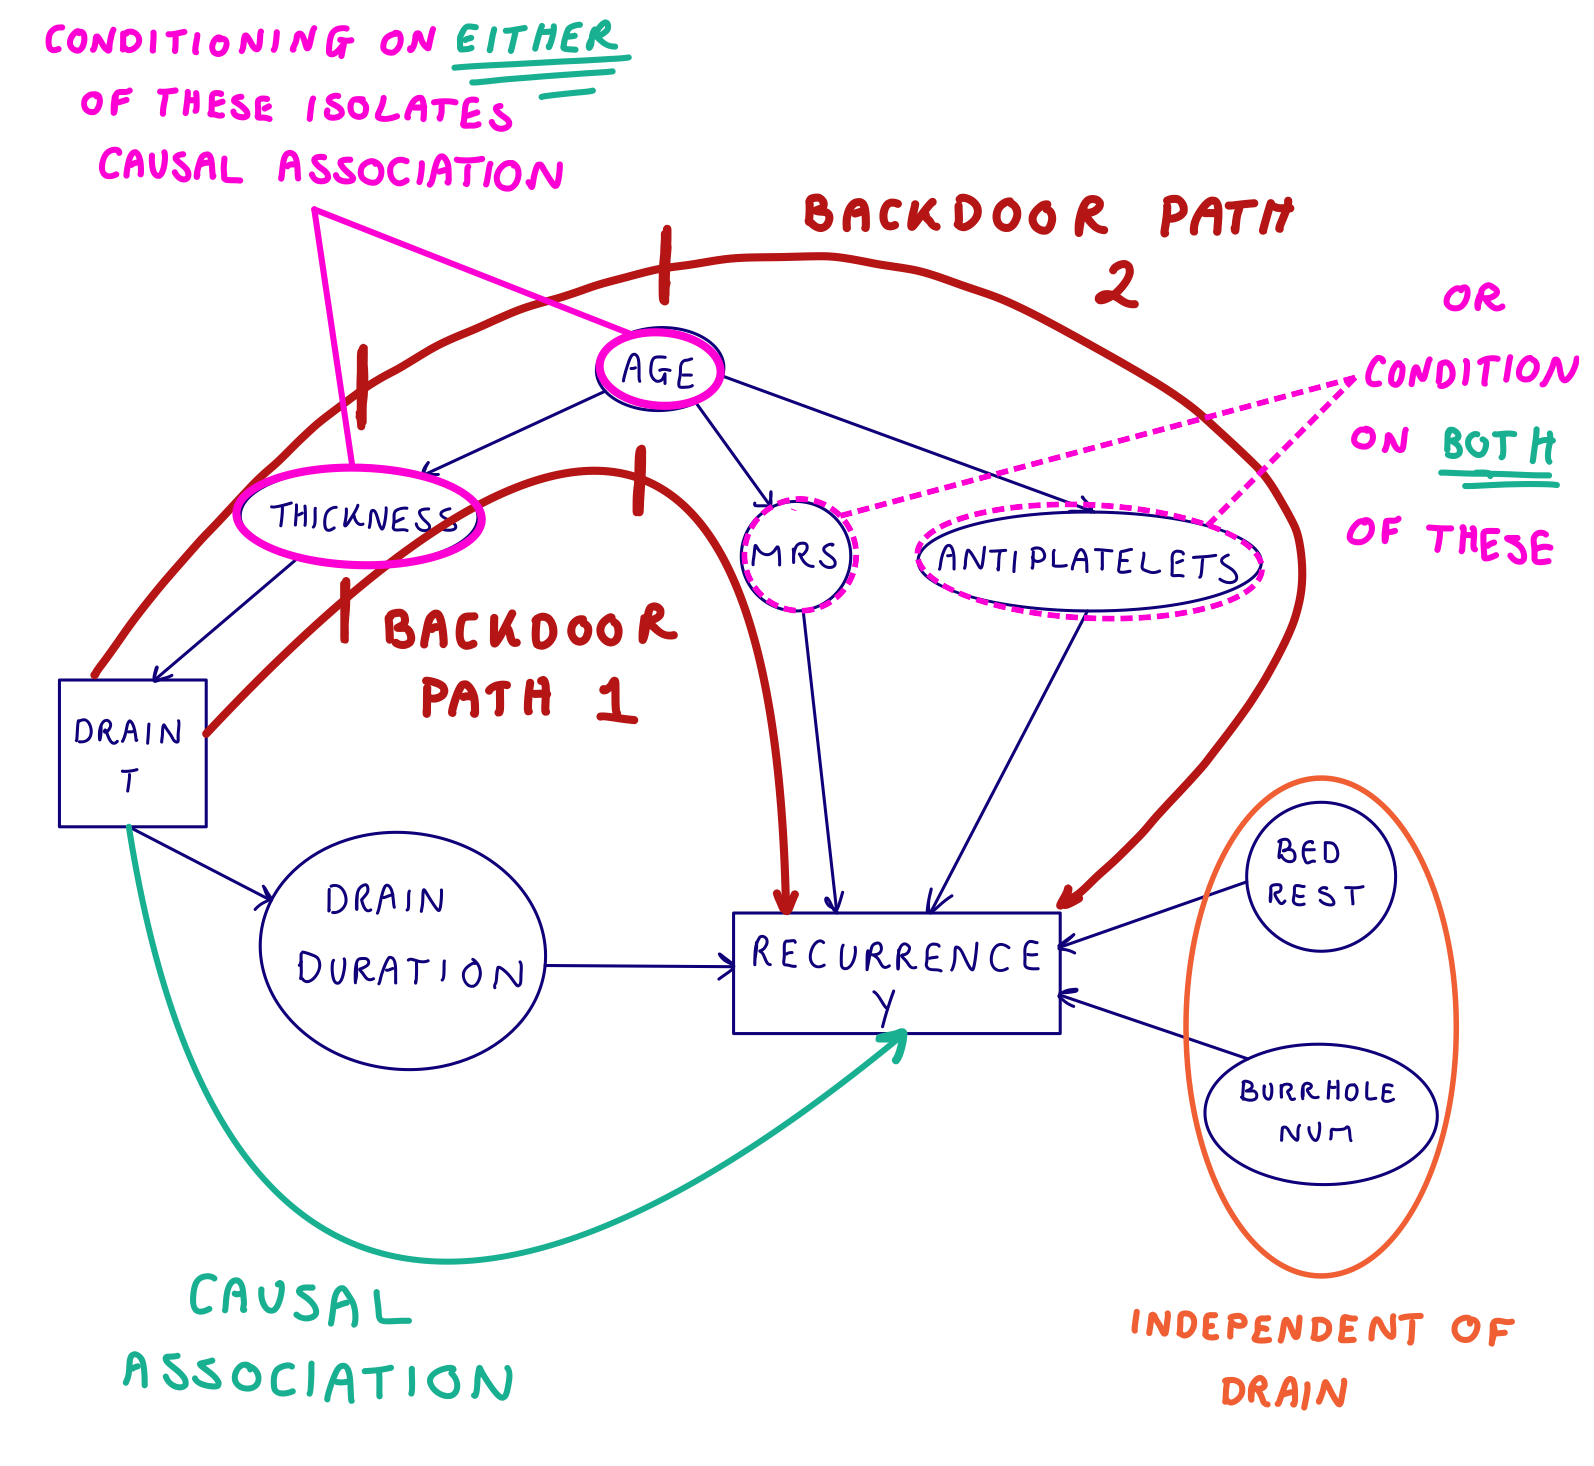 CONDITIONING ON EITHER
OF THESE ISOLATES
CAUSAL ASSOCIATION
BACKDOOR PATH
2
OR
CONDITION
ON BOTH
OF THESE
AGE
THICKNESS
MRS
ANTIPLATELETS
BACKDOOR
PATH 1
DRAIN
T
DRAIN
DURATION
RECURRENCE
Y
BED
REST
BURRHOLE
NUM
CAUSAL
ASSOCIATION
INDEPENDENT OF
DRAIN